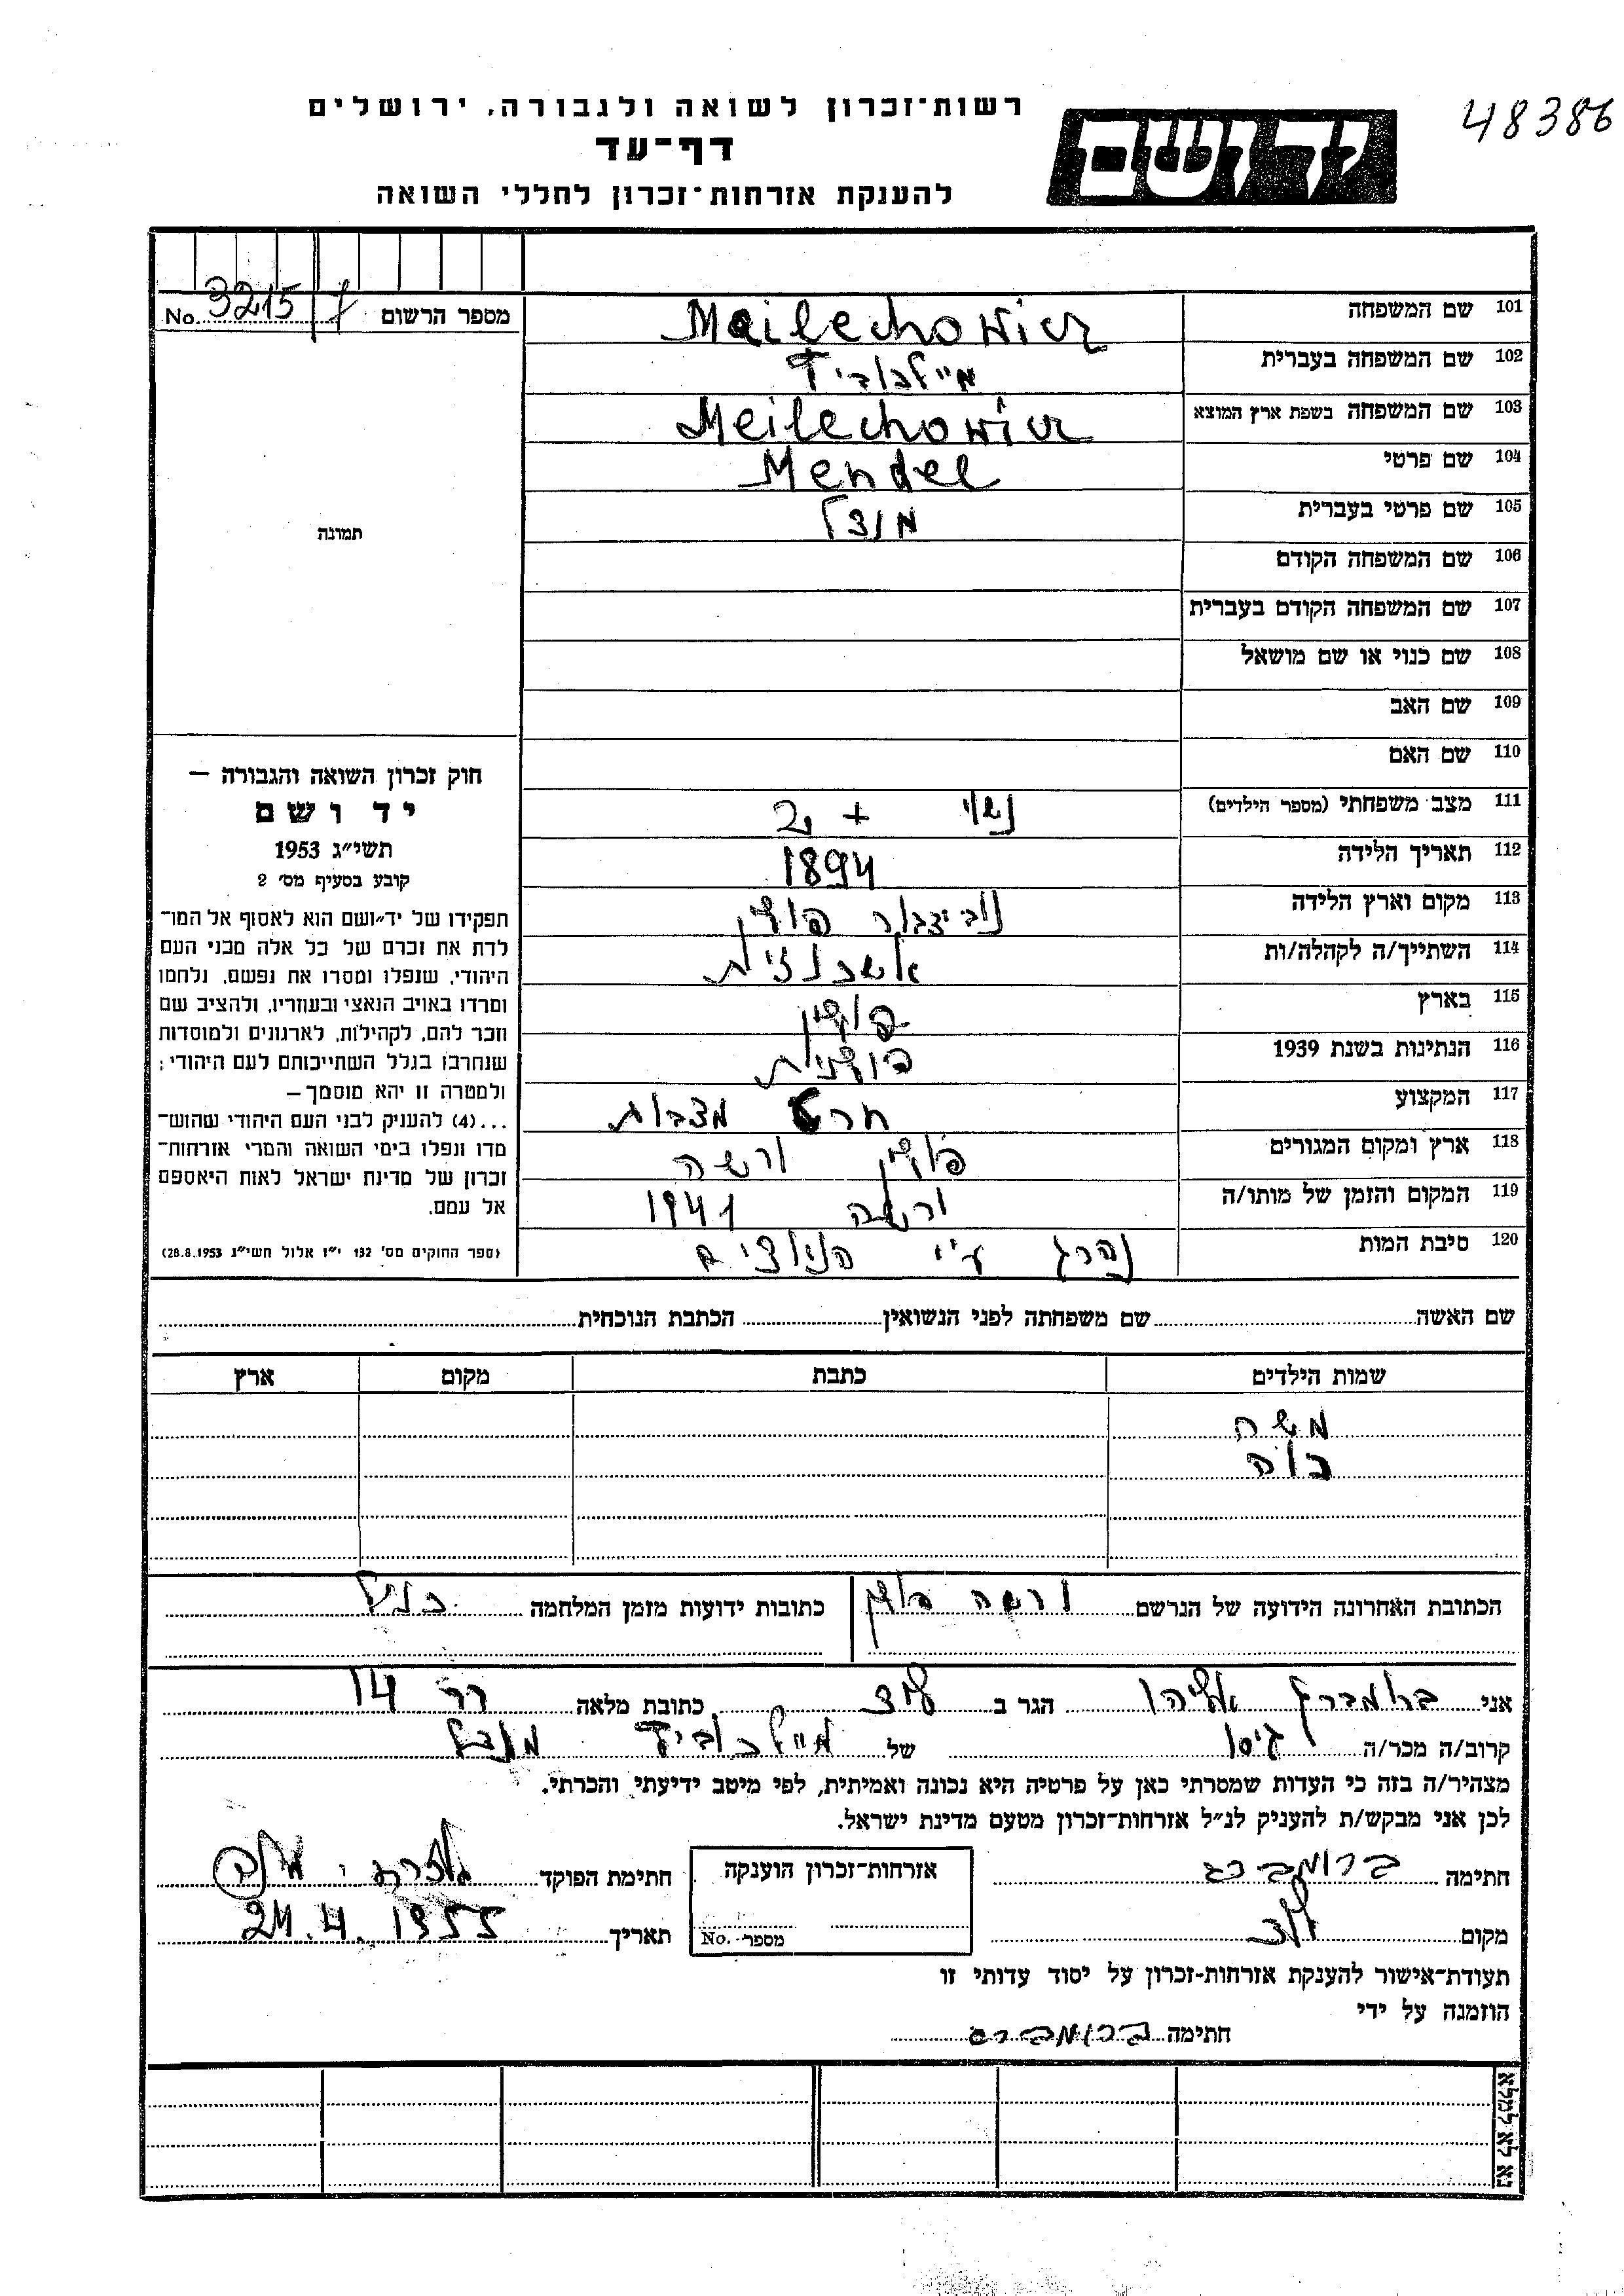 48386
רשות־זכרון לשואה ולגבורה, ירושלים
יד ושם
דף־עד
להענקת אזרחות־זכרון לחללי השואה
מספר הרשום No. 3215/7
101 שם המשפחה Mailechowicz
102 שם המשפחה בעברית מיילכוביץ
103 שם המשפחה בשפת ארץ המוצא Meilechowicz
104 שם פרטי Mendel
105 שם פרטי בעברית מנדל
106 שם המשפחה הקודם
107 שם המשפחה הקודם בעברית
108 שם כנוי או שם מושאל
109 שם האב
110 שם האם
111 מצב משפחתי (מספר הילדים) נשוי + 2
112 תאריך הלידה 1894
113 מקום וארץ הלידה פולין
114 השתייך/ה לקהלה/ות אשכנזית
115 בארץ פולין
116 הנתינות בשנת 1939 פולנית
117 המקצוע חרט מצבות
118 ארץ ומקום המגורים פולין ורשה
119 המקום והזמן של מותו/ה ורשה 1941
120 סיבת המות נהרג ע״י הנאצים
תמונה
חוק זכרון השואה והגבורה —
יד ושם
תשי״ג 1953
קובע בסעיף מס׳ 2
תפקידו של יד־ושם הוא לאסוף אל המו־
לדת את זכרם של כל אלה מבני העם
היהודי, שנפלו ומסרו את נפשם, נלחמו
ומרדו באויב הנאצי ובעוזריו, ולהציב שם
וזכר להם, לקהילות, לארגונים ולמוסדות
שנחרבו בגלל השתייכותם לעם היהודי;
ולמטרה זו יהא מוסמך—
...(4) להעניק לבני העם היהודי שהוש־
מדו ונפלו בימי השואה והמרי אזרחות־
זכרון של מדינת ישראל לאות היאספם
אל עמם.
(ספר החוקים מס׳ 132 י״ז אלול תשי״ג 28.8.1953)
שם האשה שם משפחתה לפני הנשואין הכתבת הנוכחית
שמות הילדים כתבת מקום ארץ
משה
הכתובת האחרונה הידועה של הנרשם ורשה פולין כתובות ידועות מזמן המלחמה כנ״ל
אני ברומברג אליהו הגר ב לוד כתובת מלאה 14
קרוב/ה מכר/ה גיסו של מיילכוביץ מנדל
מצהיר/ה בזה כי העדות שמסרתי כאן על פרטיה היא נכונה ואמיתית, לפי מיטב ידיעתי והכרתי.
לכן אני מבקש/ת להעניק לנ״ל אזרחות־זכרון מטעם מדינת ישראל.
חתימה ברומברג אזרחות־זכרון הוענקה חתימת הפוקד
מקום לוד מספר No. תאריך 24.4.1955
תעודת־אישור להענקת אזרחות־זכרון על יסוד עדותי זו
הוזמנה על ידי
חתימה ברומברג
נא לא למלא